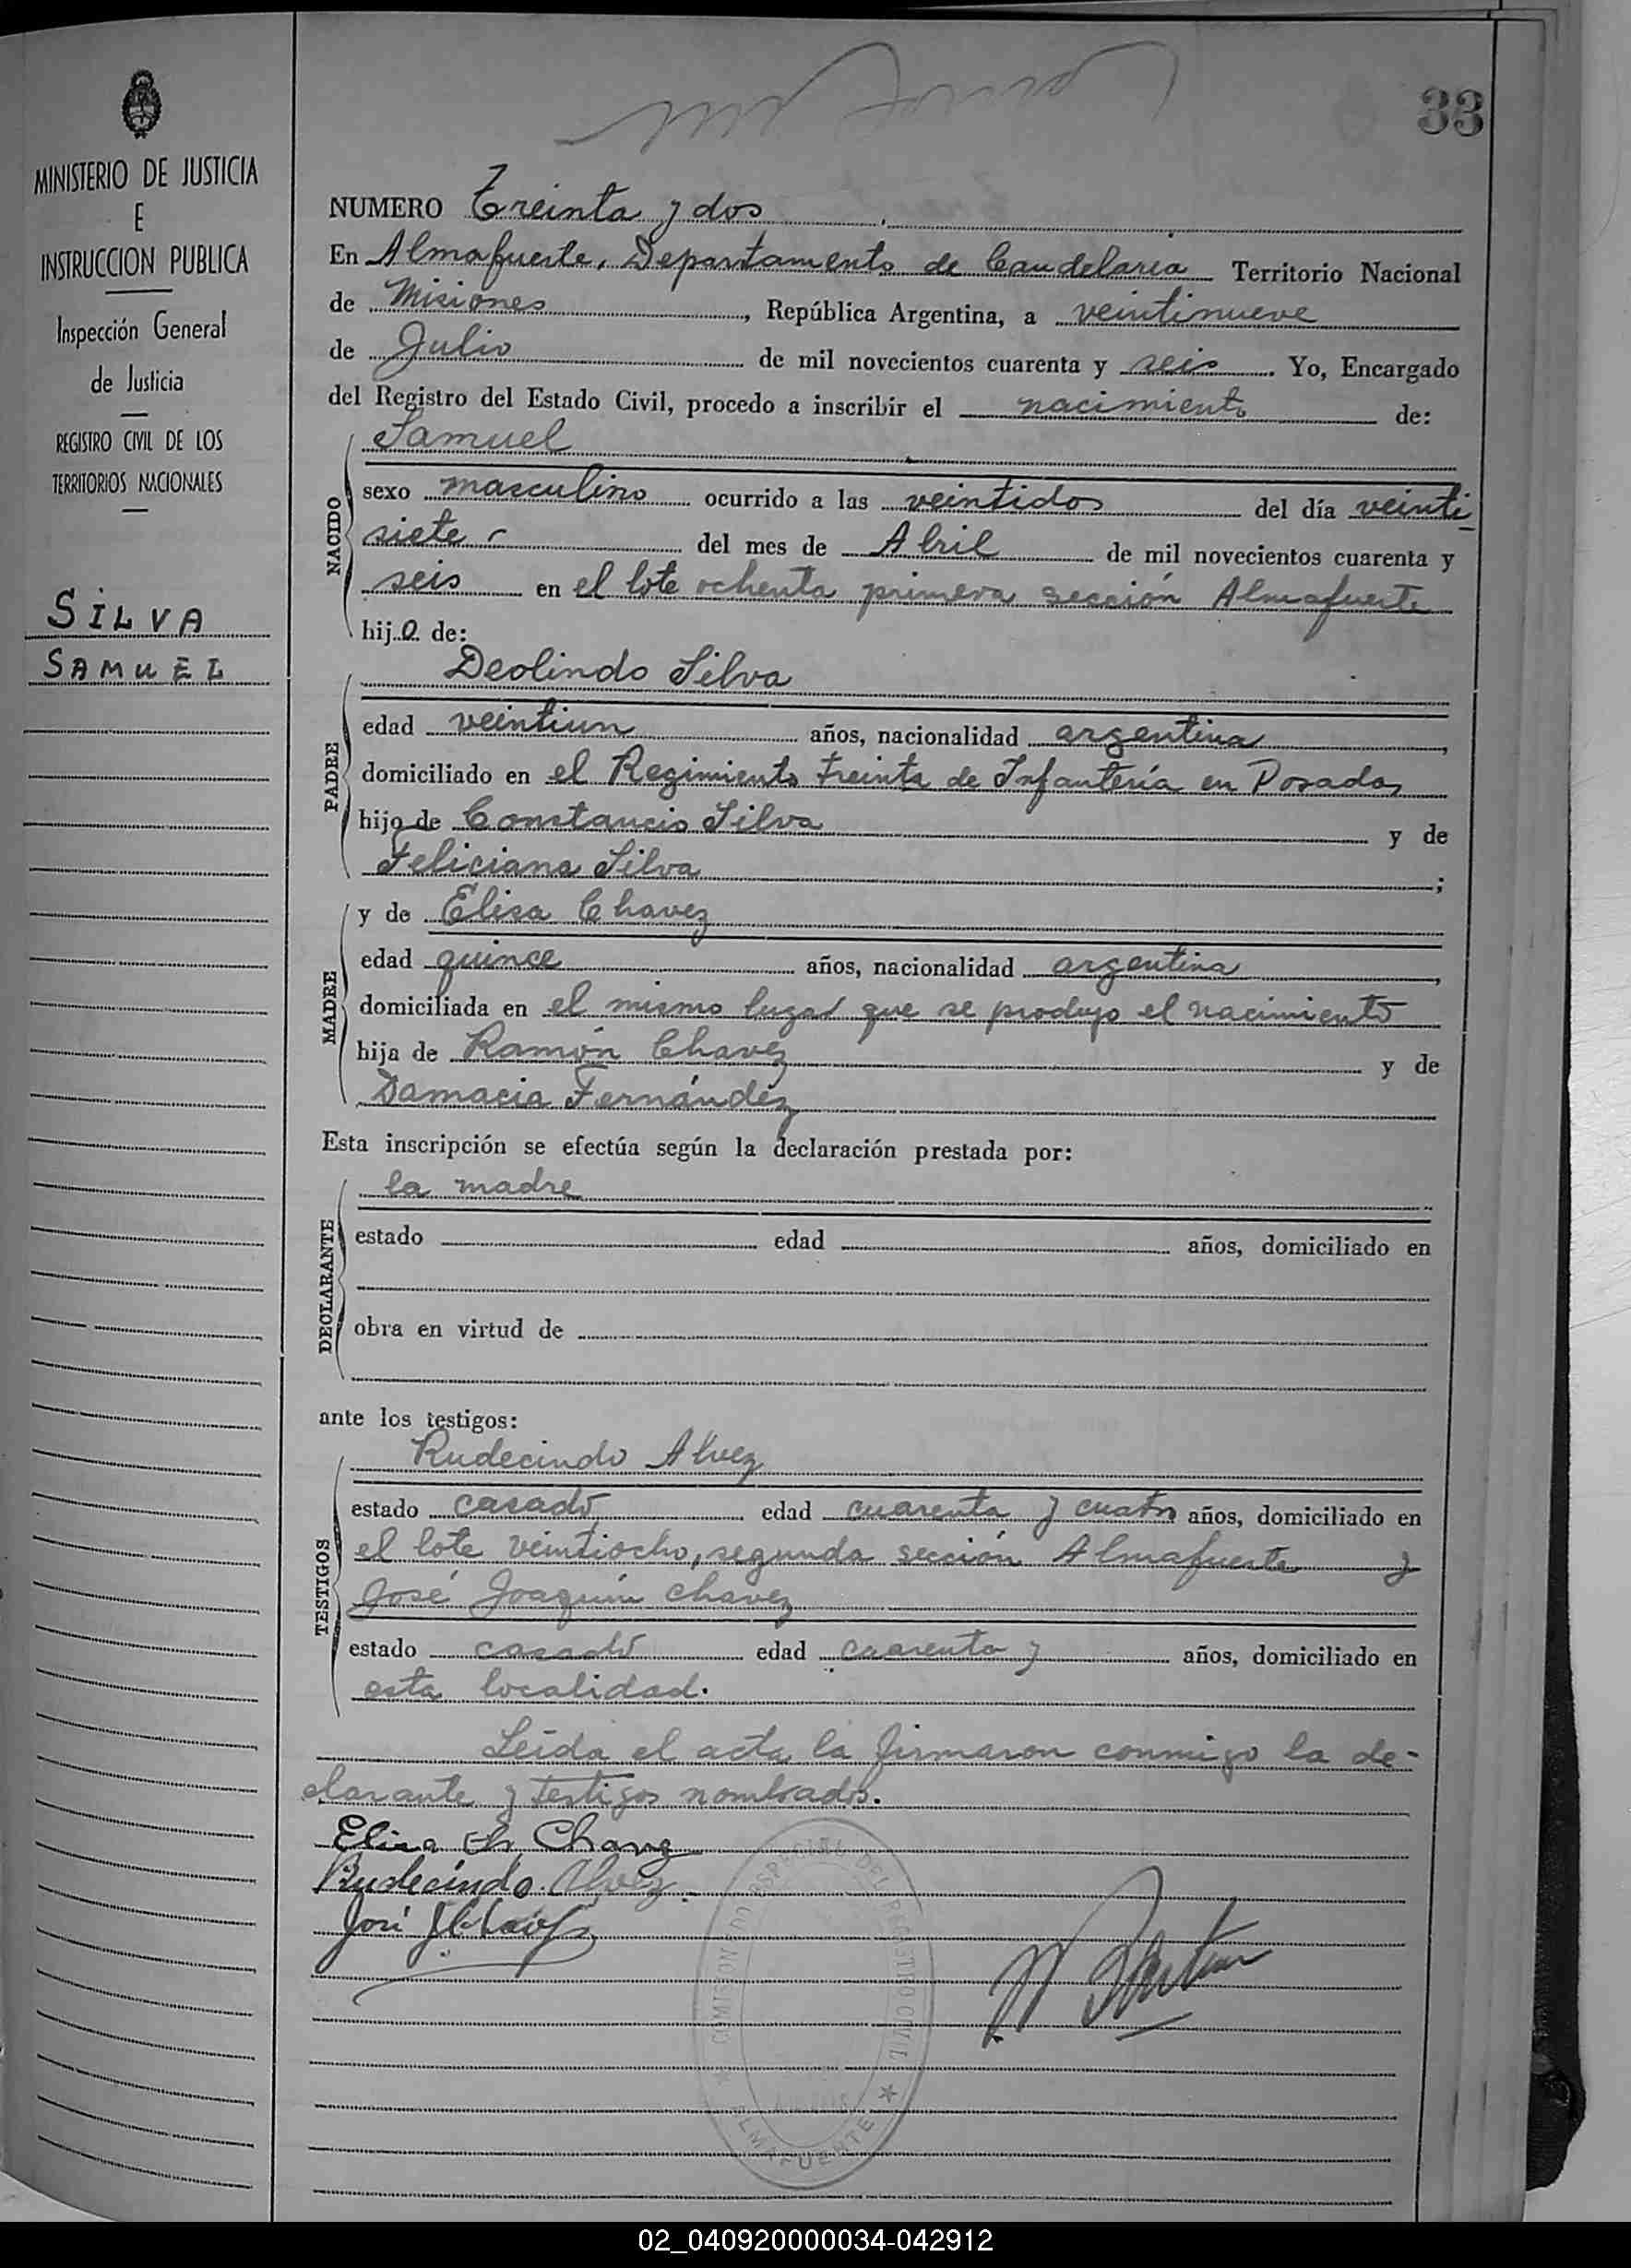 33
MINISTERIO DE JUSTICIA
E
INSTRUCCION PUBLICA
Inspección General
de Justicia
REGISTRO CIVIL DE LOS
TERRITORIOS NACIONALES
SILVA
SAMUEL
NUMERO Treinta y dos
En Almafuerte, Departamento de Candelaria Territorio Nacional
de Misiones, República Argentina, a veintinueve
de Julio de mil novecientos cuarenta y seis. Yo, Encargado
del Registro del Estado Civil, procedo a inscribir el nacimiento de:
NACIDO
Samuel
sexo masculino ocurrido a las veintidos del día veinti
siete del mes de Abril de mil novecientos cuarenta y
seis en el lote ochenta primera sección Almafuerte
hijo de:
PADRE
Deolindo Silva
edad veintiun años, nacionalidad argentina,
domiciliado en el Regimiento treinta de Infantería en Posadas
hijo de Constancio Silva y de
Feliciana Silva;
MADRE
y de Elisa Chavez
edad quince años, nacionalidad argentina,
domiciliada en el mismo lugar que se produjo el nacimiento
hija de Ramón Chavez y de
Damacia Fernández
Esta inscripción se efectúa según la declaración prestada por:
DECLARANTE
la madre
estado edad años, domiciliado en
obra en virtud de
ante los testigos:
TESTIGOS
Rudecindo Alvez
estado casado edad cuarenta y cuatro años, domiciliado en
el lote veintiocho, segunda sección Almafuerte y
José Joaquín Chavez
estado casado edad cuarenta y años, domiciliado en
esta localidad.
Leída el acta la firmaron conmigo la de-
clarante y testigos nombrados.
Elisa Chavez
Rudecindo Alvez
José
COMISIONADO ESPECIAL DEL REGISTRO CIVIL
ALMAFUERTE
02_040920000034-042912